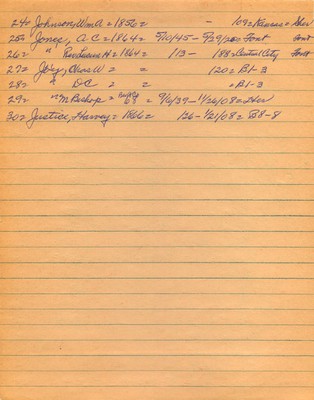 24= Johnson, Wm A = 1856 = - 109 = Kansas = Sher
25= Jones, A C = 1864 = 5/10/45 - 5/29/20 = Font Font
26= " Rev Lewis H = 1864 = 113 - 188 = Central City Font
27= Joy, W = = 120 = B1-3
28= " D C = = = B1-3
29= " M Bishop = 63 = 9/6/39 - 11/26/08 = Sher
30= Justice, Harvey = 1866 = 126 - 1/21/08 = B8-8